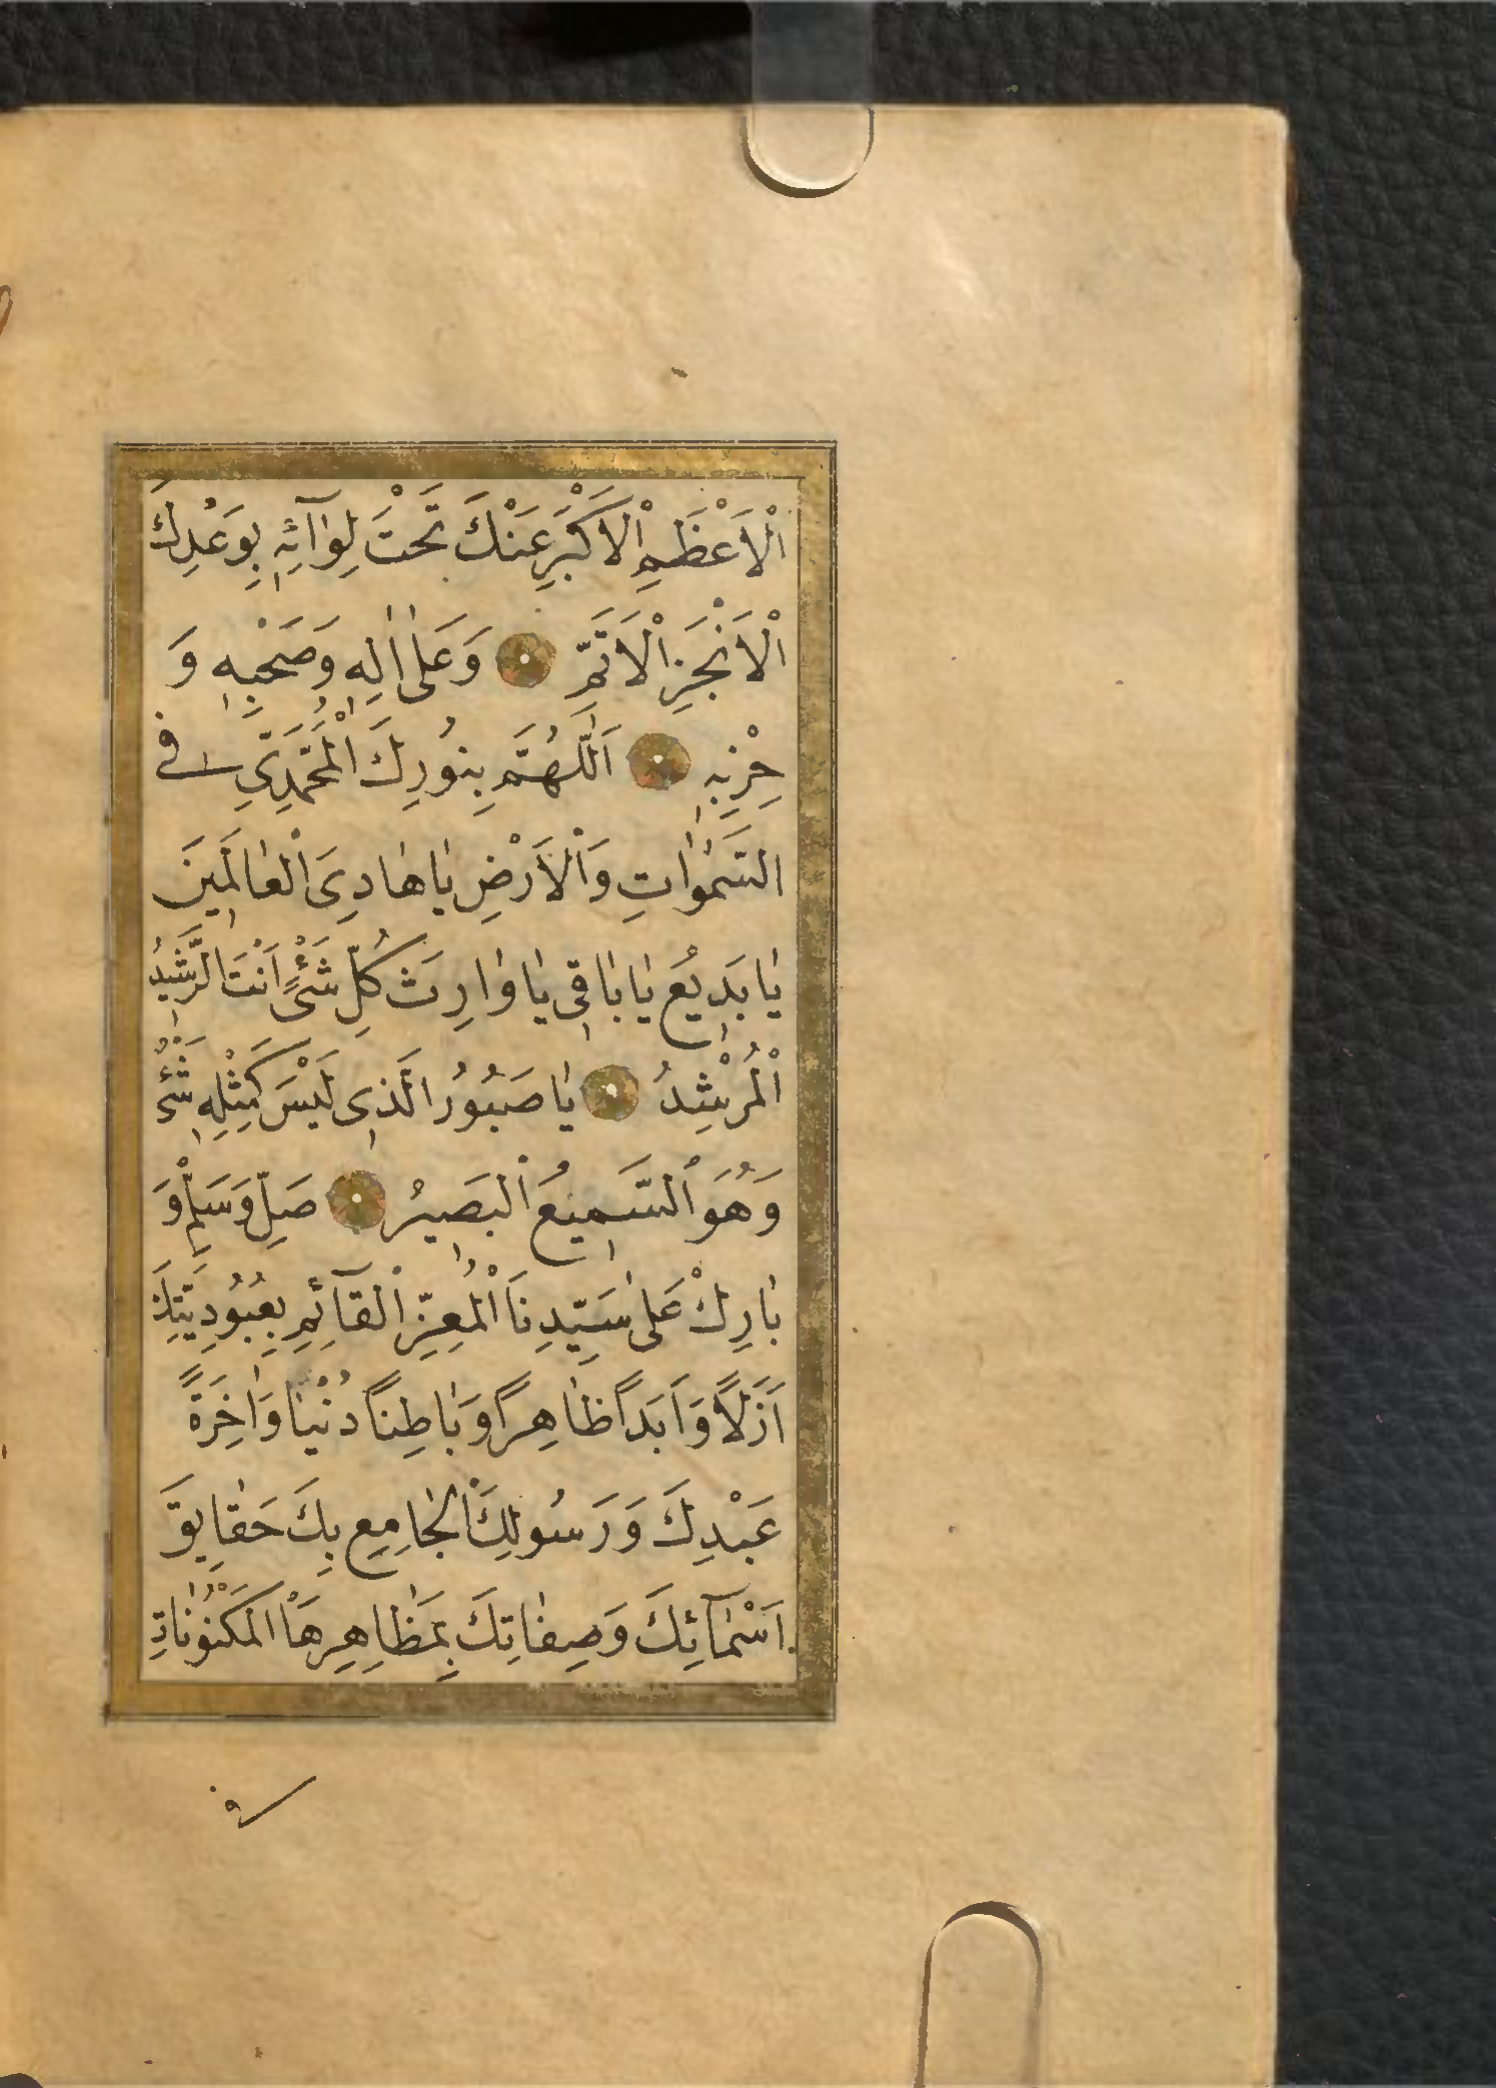 الْاَعْظَمِ الْاَكْبَرِ عَنْكَ تَحْتَ لِوٰآئِهٖ بِوَعْدِكَ
الْاَنْجَزِ الْاَتَمِّ وَعَلٰى اٰلِهٖ وَصَحْبِهٖ وَ
حِزْبِهٖ اَللّٰهُمَّ بِنُورِكَ الْمُحَمَّدِيِّ فِى
السَّمٰوٰاتِ وَالْاَرْضِ يٰا هٰادِىَ الْعٰالَمٖينَ
يٰا بَدٖيعُ يٰا بٰاقٖى يٰا وٰارِثَ كُلِّ شَىْءٍ اَنْتَ الرَّشٖيدُ
الْمُرْشِدُ يٰا صَبُورُ الَّذٖى لَيْسَ كَمِثْلِهٖ شَىْءٌ
وَهُوَ السَّمٖيعُ الْبَصٖيرُ صَلِّ وَسَلِّمْ وَ
بٰارِكْ عَلٰى سَيِّدِنَا الْمُعِزِّ الْقٰآئِمِ بِعُبُودِيَّتِكَ
اَزَلًا وَاَبَدًا ظٰاهِرًا وَبٰاطِنًا دُنْيٰا وَاٰخِرَةً
عَبْدِكَ وَرَسُولِكَ الْجٰامِعِ بِكَ حَقٰايِقَ
اَسْمٰآئِكَ وَصِفٰاتِكَ بِمَظٰاهِرِهَا الْمَكْنُونٰاتِ